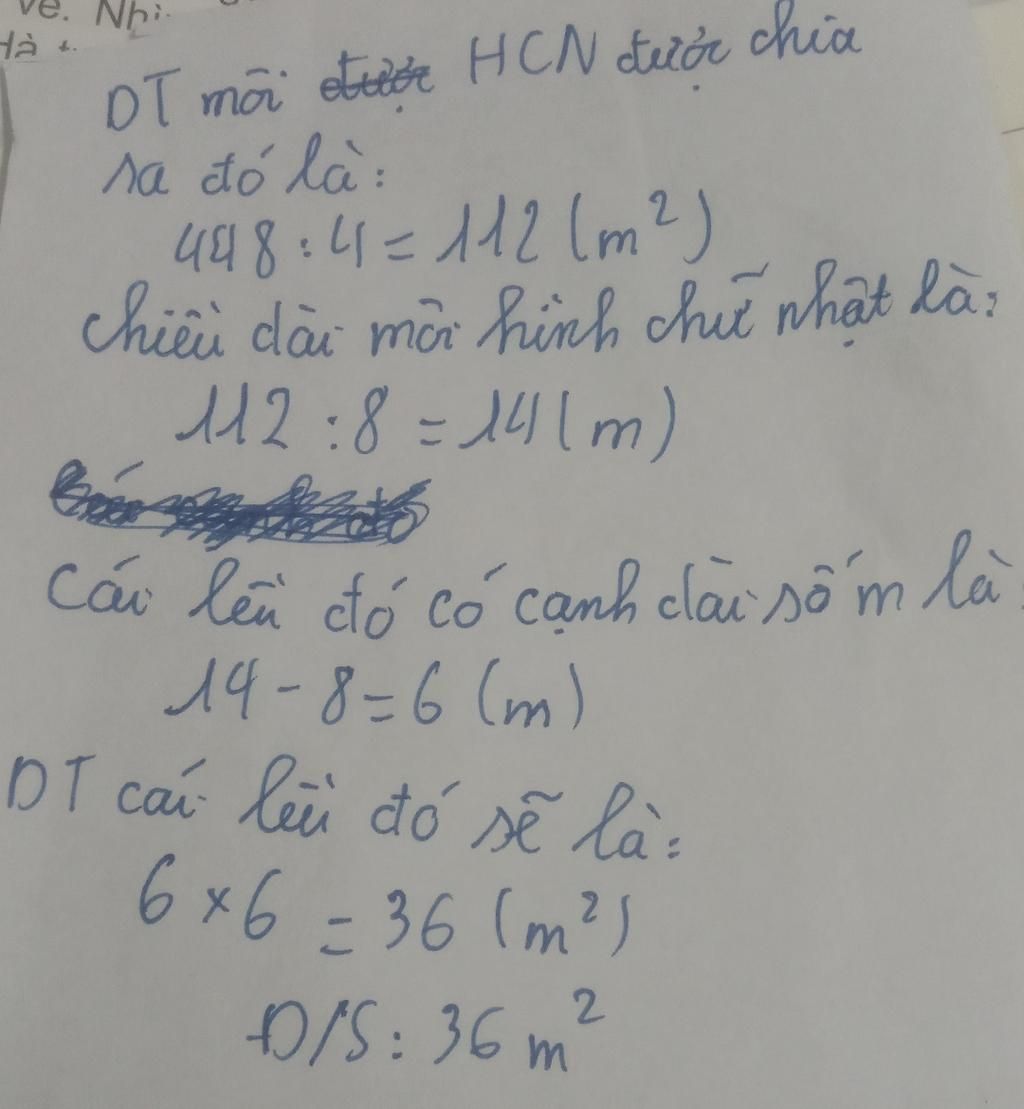 vẽ. Nhi
Hà t
DT mỗi được HCN được chia
ra đó là:
448 : 4 = 112 (m²)
Chiều dài mỗi hình chữ nhật là:
112 : 8 = 14 (m)
Cái lều đó có cạnh dài số m là:
14 - 8 = 6 (m)
DT cái lều đó sẽ là:
6 × 6 = 36 (m²)
Đ/S: 36 m²